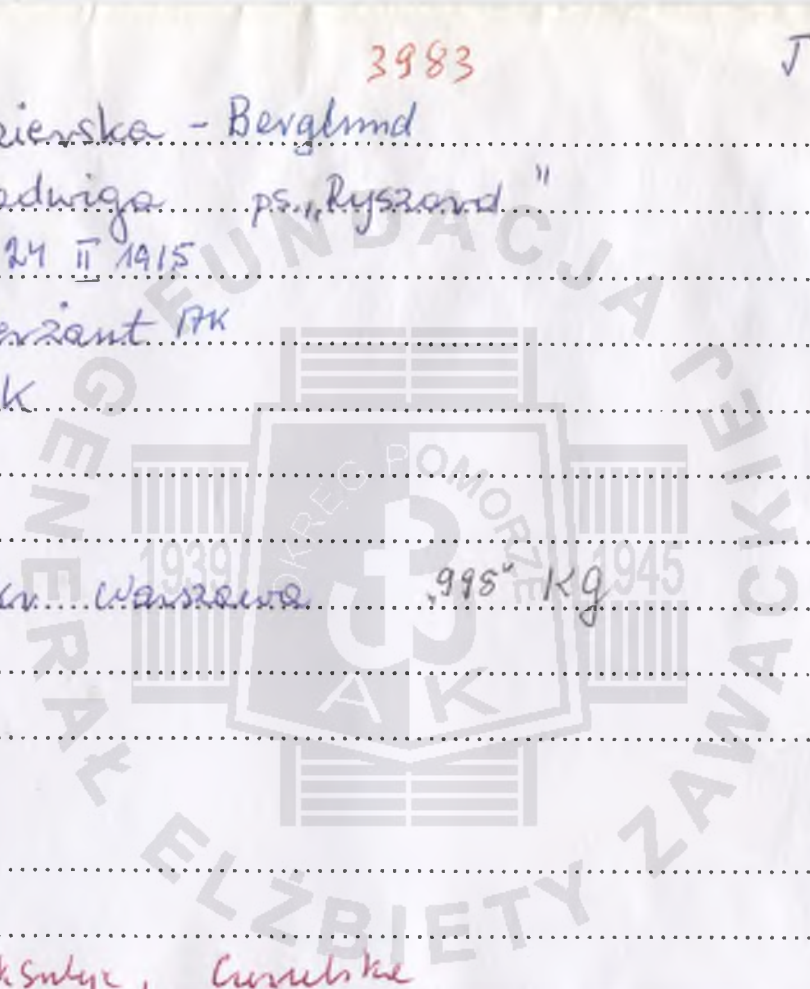 3983 J
zierska - Berglund
adwiga ps. „Ryszard"
24 II 1915
erżant AK
K
Okr. Warszawa „995" Kg
FUNDACJA
GENERAŁ ELŻBIETY ZAWACKIEJ
OKRĘG POMORZE
1939 1945
AK